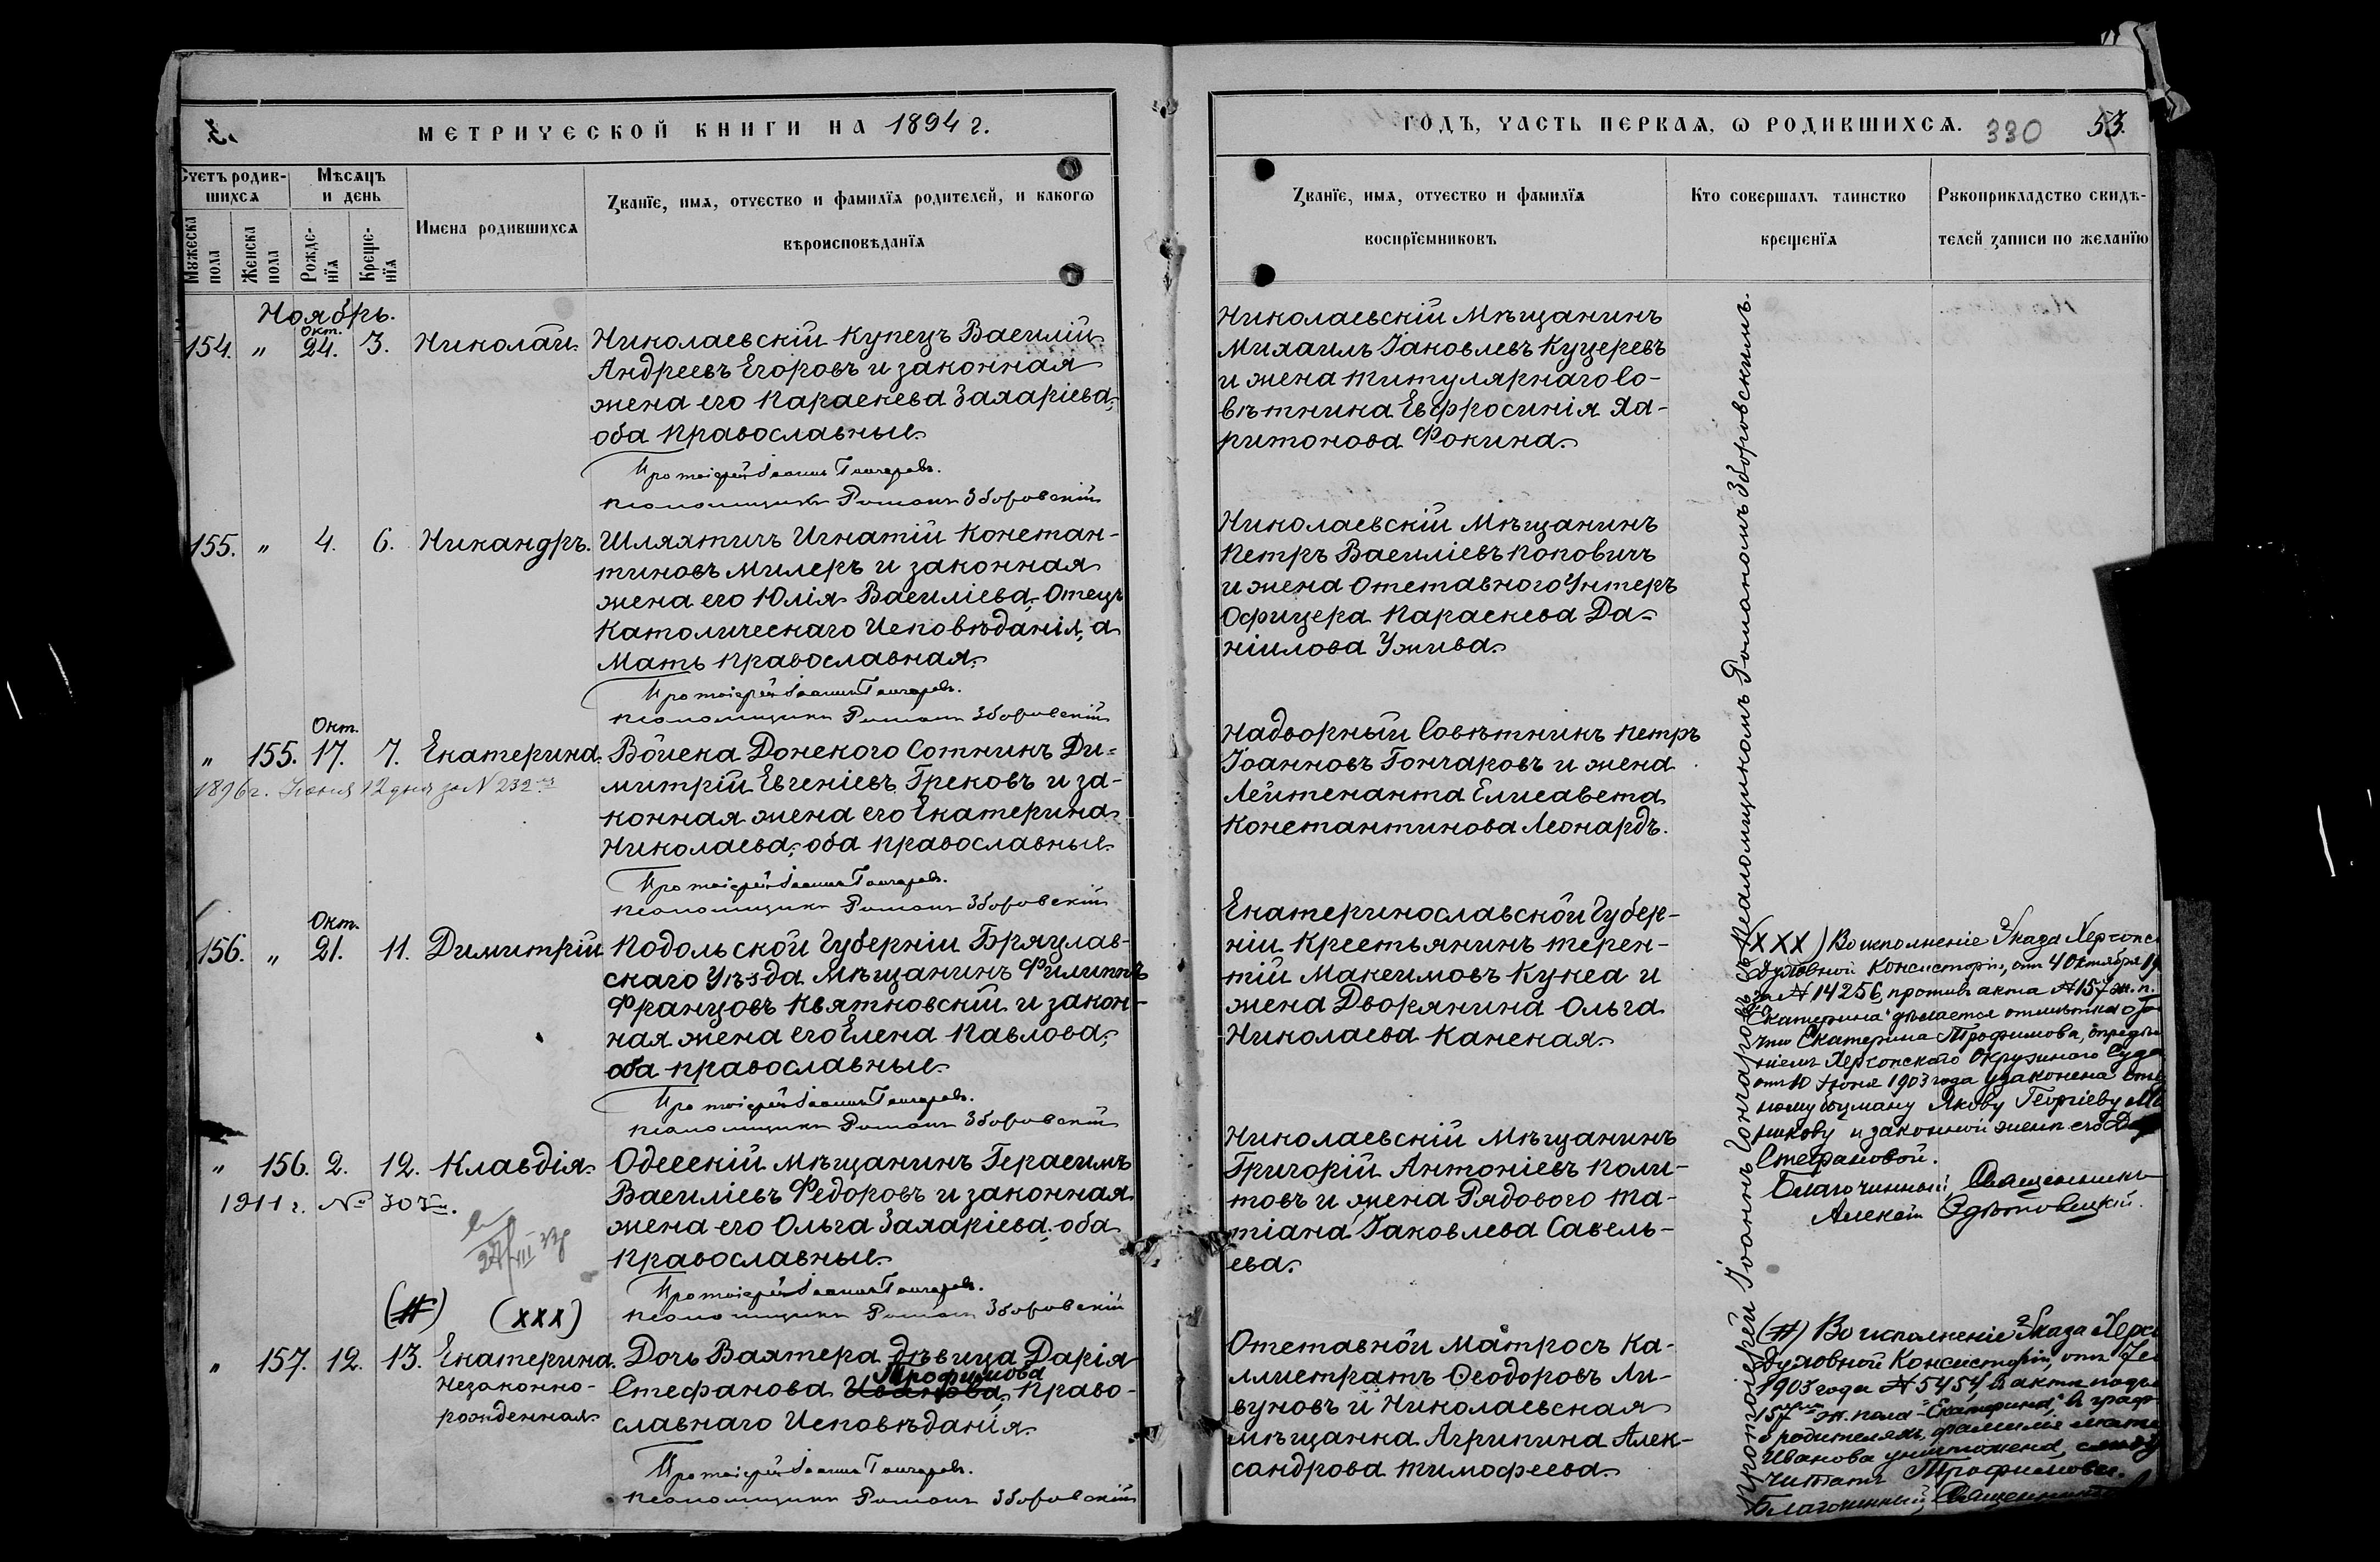 МЕТРИЧЕСКОЙ КНИГИ НА 1894 г.
Счетъ родив-
шихся
Мѣсяцъ
и день
Мужеска
пола
Женска
пола
Рожде-
нїя
Креще-
нїя
Имена родившихся
Званїе, имя, отчество и фамилїя родителей, и какогѡ
вѣроисповѣданїя
Ноябрь.
154. " Окт. 24. 3. Николай. Николаевскій Купецъ Василій
Андреевъ Егоровъ и законная
жена его Параскева Захаріева,
оба Православные.
Протоіерей Іоаннъ Гончаровъ.
Псаломщикъ Романъ Зборовскій
155. " 4. 6. Никандръ. Шляхтичъ Игнатій Констан-
тиновъ Милеръ и законная
жена его Юлія Василіева. Отецъ
Католическаго Исповѣданія, а
Мать Православная.
Протоіерей Іоаннъ Гончаровъ.
Псаломщикъ Романъ Зборовскій
" 155. Окт. 17. 7. Екатерина. Войска Донского Сотникъ Ди-
1896 г. Іюня 12 дня за № 232
митрій Евгеніевъ Грековъ и за-
конная жена его Екатерина
Николаева, оба православные.
Протоіерей Іоаннъ Гончаровъ.
Псаломщикъ Романъ Зборовскій
156. " Окт. 21. 11. Димитрій Подольской Губерніи Брацлав-
скаго Уѣзда Мѣщанинъ Филиппъ
Францовъ Квятковскій и закон-
ная жена его Елена Павлова,
оба православные.
Протоіерей Іоаннъ Гончаровъ.
Псаломщикъ Романъ Зборовскій
" 156. 2. 12. Клавдія. Одесскій мѣщанинъ Герасимъ
1911 г. №
Василіевъ Федоровъ и законная
жена его Ольга Захаріева, оба
Православные.
Протоіерей Іоаннъ Гончаровъ.
Псаломщикъ Романъ Зборовскій
(#) (XXX)
" 157. 12. 13. Екатерина. Дочь Вахтера дѣвица Дарія
Незаконно-
рожденная.
Трофимова
Стефанова Иванова, Право-
славнаго Исповѣданія.
Протоіерей Іоаннъ Гончаровъ.
Псаломщикъ Романъ Зборовскій
ГОДЪ, ЧАСТЬ ПЕРВАЯ, Ѡ РОДИВШИХСЯ. 330 53.
Званїе, имя, отчество и фамилїя
воспрїемниковъ
Кто совершалъ таинство
крещенїя
Рукоприкладство свидѣ-
телей записи по желанїю
Николаевскій Мѣщанинъ
Михаилъ Іаковлевъ Куцеревъ
и жена титулярнаго Со-
вѣтника Евфросинія Ха-
ритонова Фокина.
Николаевскій Мѣщанинъ
Петръ Василіевъ Поповичъ
и жена Отставного Унтеръ
Офицера Параскева Да-
ніилова Ужива.
Надворный Совѣтникъ Петръ
Іоанновъ Гончаровъ и жена
Лейтенанта Елисавета
Константинова Леонардъ.
Екатеринославской Губер-
ніи Крестьянинъ Терен-
тій Максимовъ Кукса и
жена Дворянина Ольга
Николаева Канская.
Николаевскій Мѣщанинъ
Григорій Антоніевъ Поли-
товъ и жена Рядового Та-
тіана Іаковлева Савель-
ева.
Отставной Матросъ Ка-
ллистратъ Ѳеодоровъ Ли-
вуновъ и Николаевская
мѣщанка Агрипина Алек-
сандрова Тимофеева.
Протоіерей Іоаннъ Гончаровъ съ Псаломщикомъ Романомъ Зборовскимъ.
(XXX) Во исполненіе Указа Херсонс
Духовной Консисторіи, отъ 4 Октября 19
за № 14256, противъ акта № 157 ж. п.
"Екатерина" дѣлается отмѣтка о
что Екатерина Трофимова, опредѣле
ніемъ Херсонскаго Окружного Суда
отъ 10 Іюня 1903 года узаконена
ному боцману Якову Георгіеву
никову и законной женѣ его
Стефановой.
Благочинный, Священникъ
Алексій
(#) Во исполненіе Указа Херс
Духовной Консисторіи, отъ
1903 года № 5454, въ актѣ подъ
157 ж. пола "Екатерина", въ граф
о родителяхъ, фамилія мате
Иванова уничтожена,
читать Трофимова.
Благочинный, Священникъ